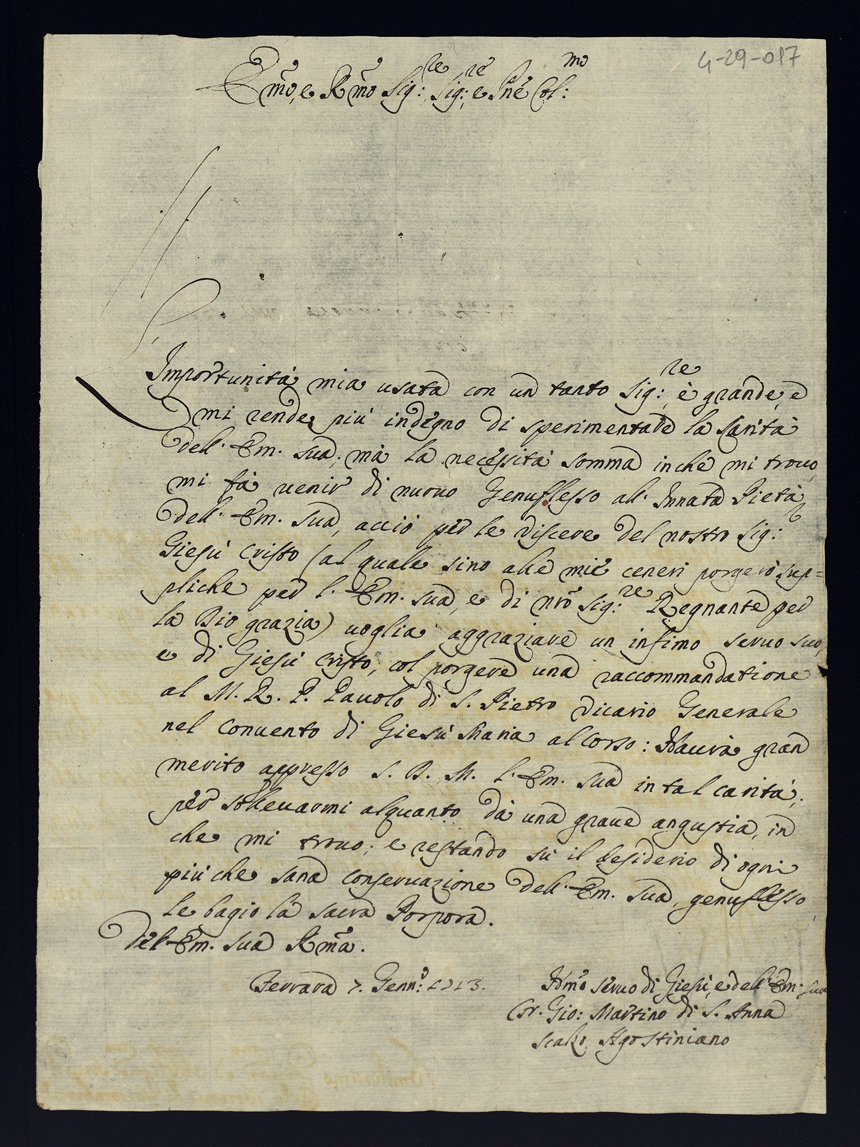 4-29-017
Emo, e Rmo Sig:re, Sig:re e Pne Col:mo
L'Importunità mia usata con un tanto Sig:re, è grande, e
mi rende più indegno di sperimentare la Carità
dell'Em. Sua; mà la necessità somma inche mi trovo,
mi fà venir di nuovo Genuflesso all'Innata Pietà
dell'Em. Sua, acciò per le viscere del nostro Sig:e
Giesù Cristo (al quale sino alle mie ceneri porgerò sup=
pliche per l'Em. Sua, e di nro Sig:re Regnante per
la Dio grazia) voglia aggraziare un infimo servo suo,
e di Giesù Cristo, col porgere una raccommandatione
al M. R. P. Pavolo di S. Pietro Vicario Generale
nel Convento di Giesù Maria al Corso: Haverà gran
merito appresso S. D. M. l'Em. Sua in tal carità,
per sollevarmi alquanto dà una grave angustia, in
che mi trovo; e restando sù il desiderio di ogni
più che sana conservazione dell'Em. Sua, genuflesso
le bagio la sacra Porpora.
Dell'Em. Sua Rma.
Ferrara 7. Genn:o 1713.
Hmo servo di Giesù, e dell'Em. Sua
Fr. Gio: Martino di S. Anna
Scalzo Agostiniano